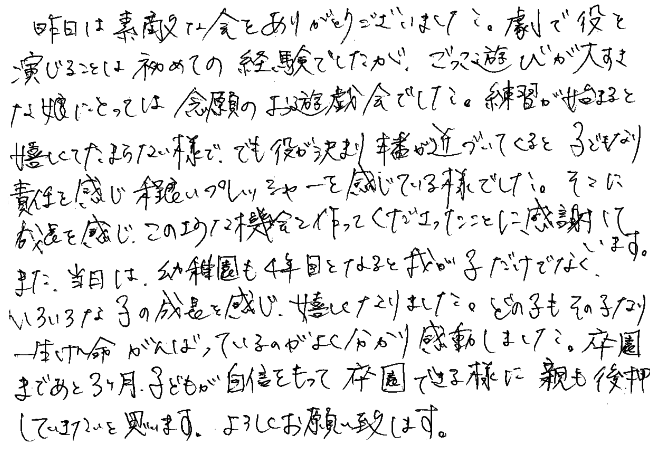 昨日は素敵な会をありがとうございました。劇で役を
演じることは初めての経験でしたが、ごっこ遊びが大すき
な娘にとっては念願のお遊戯会でした。練習が始まると
嬉しくてたまらない様で、でも役が決まり本番が近づいてくると子どもなり
責任を感じ程良いプレッシャーを感じている様でした。そこに
成長を感じ、このような機会を作ってくださったことに感謝して
います。
また、当日は、幼稚園も4年目となると我が子だけでなく、
いろいろな子の成長を感じ、嬉しくなりました。どの子もその子なり
一生けん命がんばっているのがよく分かり感動しました。卒園
まであと3ヶ月、子どもが自信をもって卒園できる様に親も後押
していきたいと思います。よろしくお願い致します。